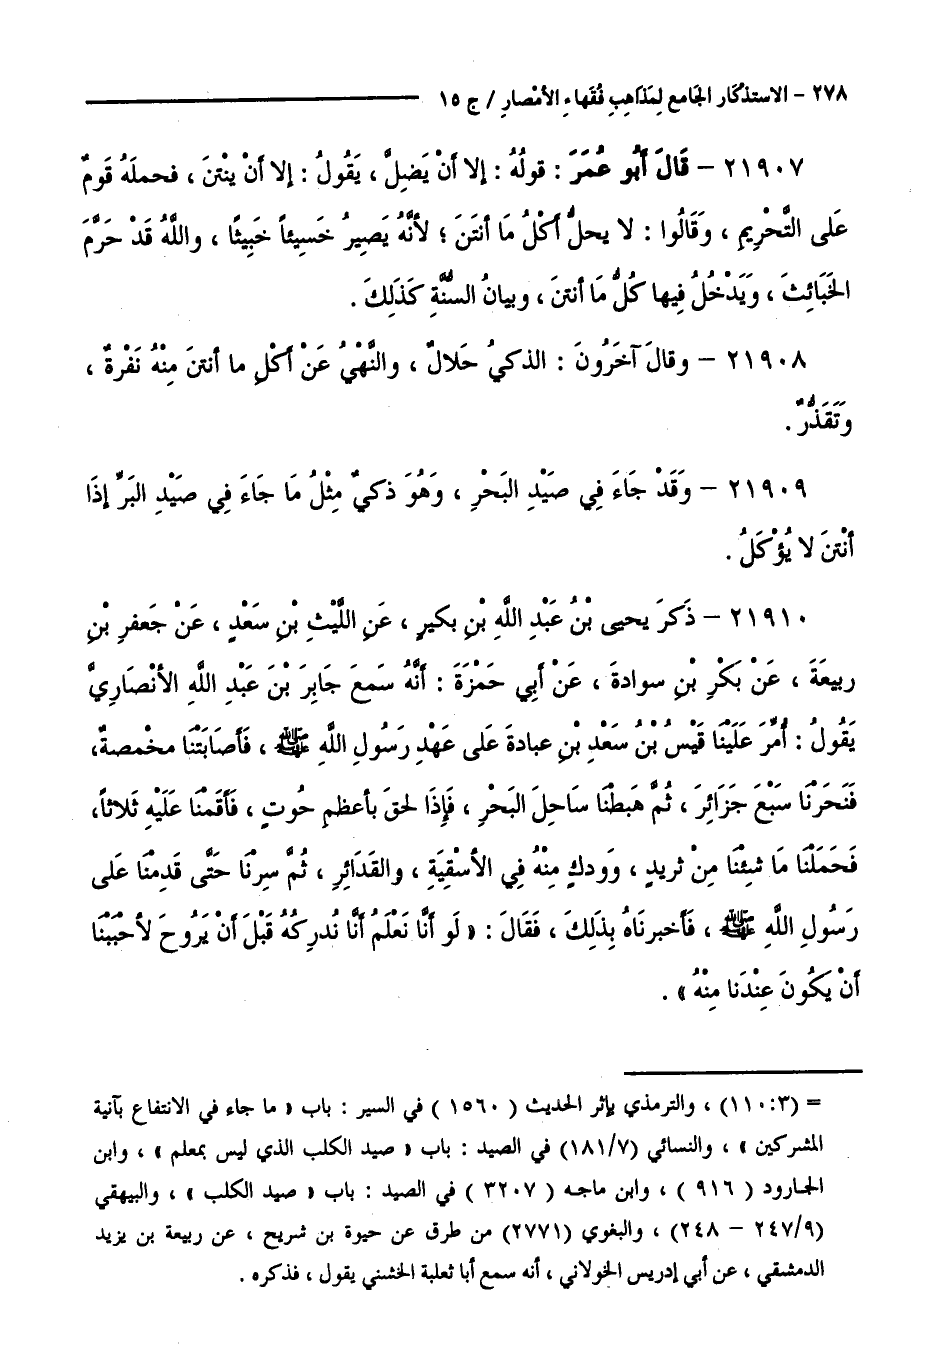 ٢٧٨ – الاستذكار الجامع لِمَذَاهِبِ فُقَهاءِ الأمْصارِ / ج ١٥
٢١٩٠٧ – قَالَ أَبُو عُمَرَ : قولُهُ : إلا أَنْ يَضِلَّ ، يَقُولُ : إلا أَنْ يَنْتنَ ، فحملَهُ قَومٌ
عَلى التَّحْرِيمِ ، وَقَالُوا : لا يحلُّ أَكْلُ مَا أنتَنَ ؛ لأنَّهُ يَصِيرُ خَسِيئاً خَبِيثًا ، واللَّهُ قَدْ حَرَّمَ
الخَبَائِثَ ، وَيَدْخُلُ فِيها كُلُّ مَا أنتنَ ، وبيانُ السنَّةِ كَذَلِكَ .
٢١٩٠٨ – وقالَ آخَرُونَ : الذكيُ حَلالٌ ، والنَّهْيُ عَنْ أَكْلِ ما أنتنَ مِنْهُ نَفْرةٌ ،
وَتَقَذُّرٌ .
٢١٩٠٩ – وَقَدْ جَاءَ فِي صَيْدِ البَحْرِ ، وَهُوَ ذكيٌ مِثْلُ مَا جَاءَ فِي صَيْدِ البَرِّ إذَا
أنْتنَ لا يُؤْكَلُ .
٢١٩١٠ – ذَكَرَ يحيى بْنُ عَبْدِ اللَّهِ بْنِ بكيرٍ ، عَنِ اللَّيْثِ بْنِ سَعْدٍ ، عَنْ جَعفرِ بْنِ
ربيعَةَ ، عَنْ بَكْرِ بْنِ سوادةَ ، عَنْ أَبِي حَمْزَةَ : أَنَّهُ سَمعَ جَابِرَ بْنَ عَبْدِ اللَّهِ الأنْصَارِيَّ
يَقُولُ : أُمِّرَ عَلَيْنَا قَيْسُ بْنُ سَعْدِ بْنِ عبادةَ عَلى عَهْدِ رَسُولِ اللَّهِ ﷺ ، فَأصَابَتْنَا مخْمصةٌ،
فَنَحَرْنَا سَبْعَ جَزَائِرَ ، ثُمَّ هَبطْنَا سَاحِلَ البَحْرِ ، فَإذَا لحقَ بأعظمِ حُوتٍ ، فَأقمْنَا عَلَيْهِ ثَلاثاً،
فَحَمَلْنَا مَا شئِنْنَا مِنْ ثريدٍ ، وَودكٍ مِنْهُ فِي الأسْقِيَةِ ، والقَدَائِرِ ، ثُمَّ سِرْنَا حَتَّى قَدِمْنا عَلى
رَسُولِ اللَّهِ ﷺ ، فَأخبرنَاهُ بِذَلِكَ ، فَقَالَ : « لَو أَنَّا نَعْلَمُ أَنَّا نُدركُهُ قَبْلَ أَنْ يَرُوحَ لأحْبَبْنَا
أنْ يَكُونَ عِنْدَنا مِنْهُ » .
= (٣:١١٠) ، والترمذي بإثر الحديث ( ١٥٦٠ ) في السير : باب « ما جاء في الانتفاع بآنية
المشركين » ، والنسائي (١٨١/٧) في الصيد : باب « صيد الكلب الذي ليس بمعلم » ، وابن
الجارود ( ٩١٦ ) ، وابن ماجه ( ٣٢٠٧ ) في الصيد : باب « صيد الكلب » ، والبيهقي
(٢٤٧/٩ – ٢٤٨) ، والبغوي (٢٧٧١) من طرق عن حيوة بن شريح ، عن ربيعة بن يزيد
الدمشقي ، عن أبي إدريس الخولاني ، أنه سمع أبا ثعلبة الخشني يقول ، فذكره .